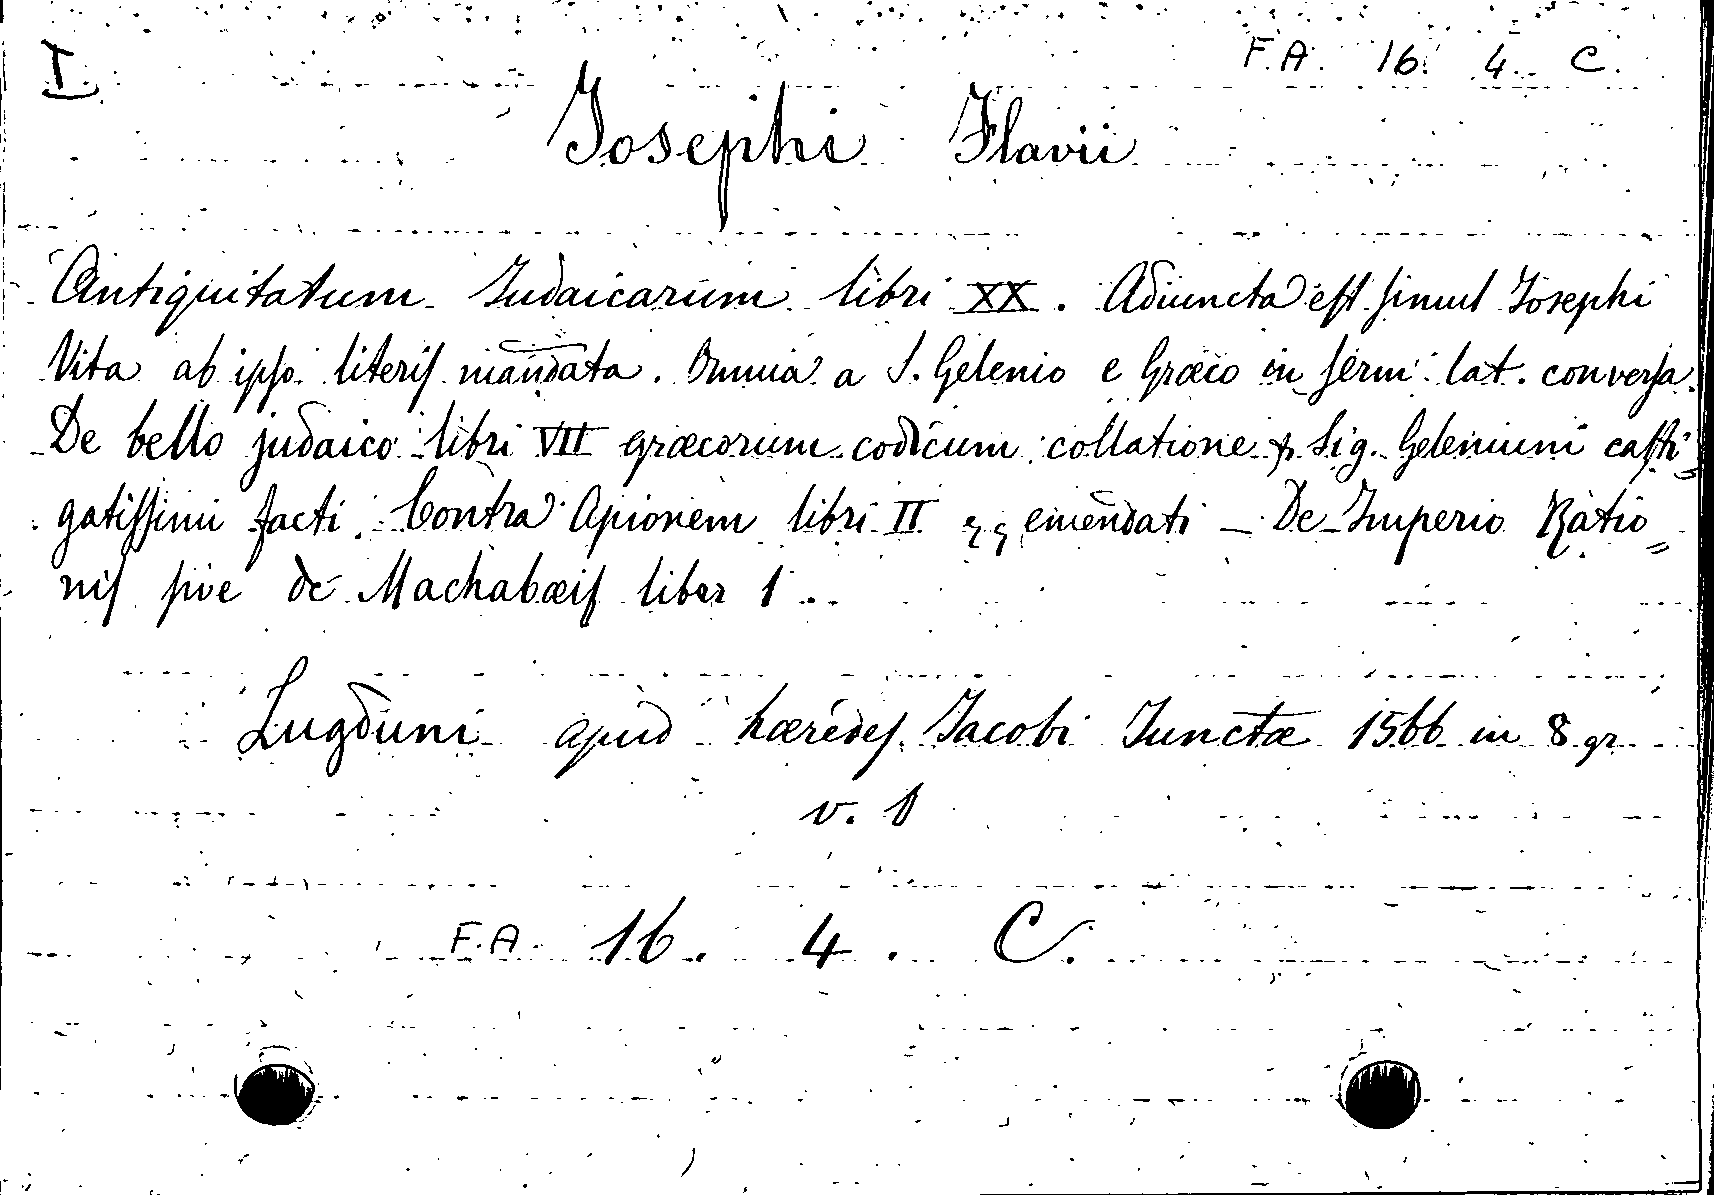 I F.A. 16. 4. C.
Josephi Flavii
Antiquitatum Judaicarum libri XX. Adiuncta est simul Josephi
Vita ab ipso literis mandata. Omnia a S. Gelenio e Græco in serm: lat. conversa.
De bello judaico libri VII græcorum codicum collatione p. Sig. Gelenium casti=
gatissimi facti. Contra Apionem libri II emendati — De Imperio Ratio=
nis sive de Machabæis liber 1.
Lugduni apud hæredes Jacobi Junctæ 1566 in 8 gr.
v. 1
F.A. 16. 4. C.